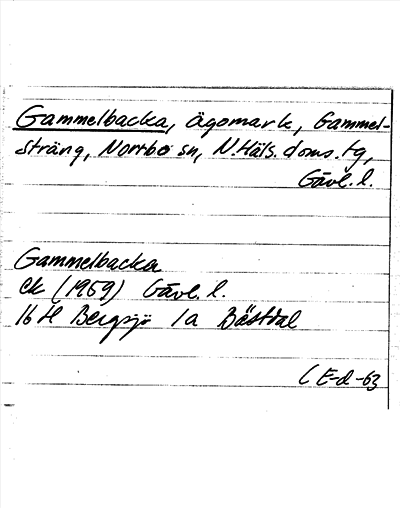 Gammelbacka, Ägomark, Gammel-
sträng, Norrbo sn, N.Häls. doms. tg,
Gävl. l.
Gammelbacka
Ek (1959) Gävl. l.
16 H Bergsjö 1a Bästdal
C E-d -63